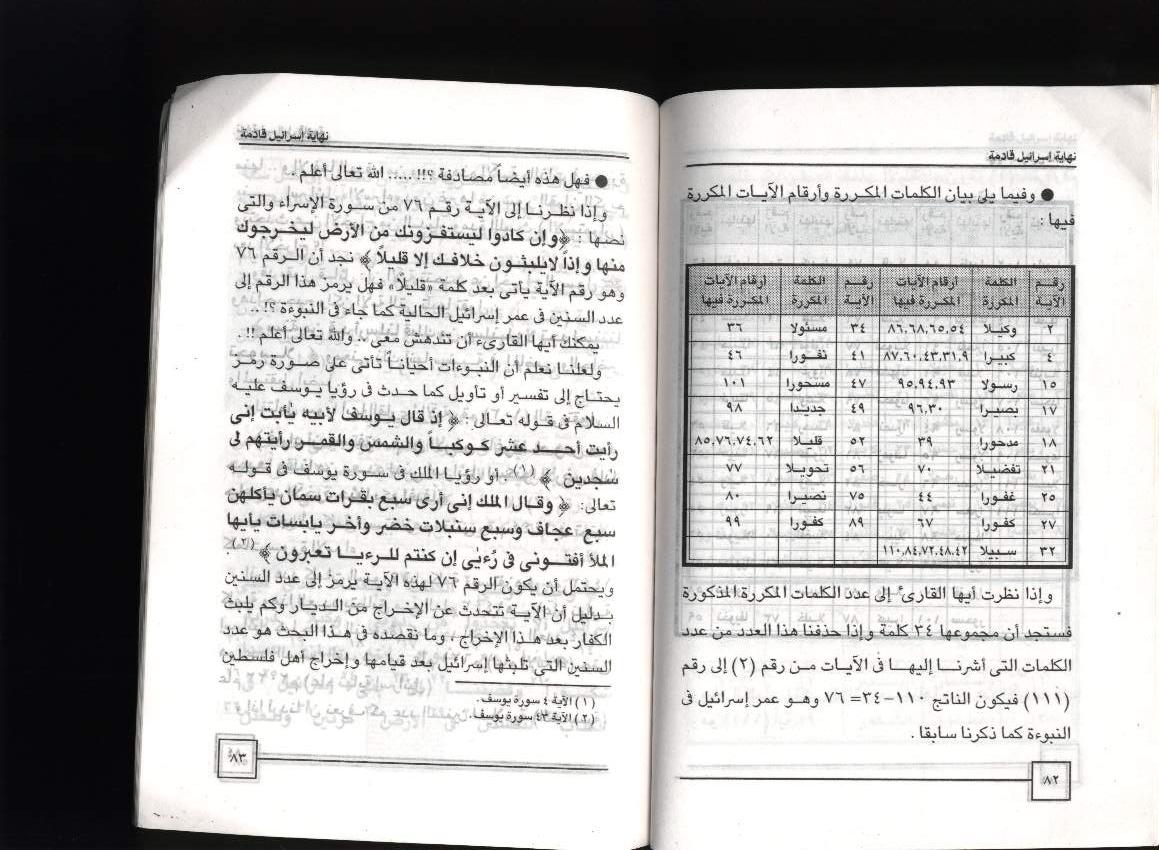 نهاية إسرائيل قادمة
● وفيما يلى بيان الكلمات المكررة وأرقام الآيات المكررة
فيها :
رقم الآية	الكلمة المكررة	أرقام الآيات المكررة فيها	رقم الآية	الكلمة المكررة	أرقام الآيات المكررة فيها
٢	وكيلا	٨٦،٦٨،٦٥،٥٤	٣٤	مسئولا	٣٦
٤	كبيرا	٨٧،٦٠،٤٣،٣١،٩	٤١	نفورا	٤٦
١٥	رسولا	٩٥،٩٤،٩٣	٤٧	مسحورا	١٠١
١٧	بصيرا	٩٦،٣٠	٤٩	جديدا	٩٨
١٨	مدحورا	٣٩	٥٢	قليلا	٨٥،٧٦،٧٤،٦٢
٢١	تفضيلا	٧٠	٥٦	تحويلا	٧٧
٢٥	غفورا	٤٤	٧٥	نصيرا	٨٠
٢٧	كفورا	٦٧	٨٩	كفورا	٩٩
٣٢	سبيلا	١١٠،٨٤،٧٢،٤٨،٤٢
وإذا نظرت أيها القارئ إلى عدد الكلمات المكررة المذكورة
فستجد أن مجموعها ٣٤ كلمة وإذا حذفنا هذا العدد من عدد
الكلمات التى أشرنا إليها فى الآيات من رقم (٢) إلى رقم
(١١١) فيكون الناتج ١١٠-٣٤= ٧٦ وهو عمر إسرائيل فى
النبوءة كما ذكرنا سابقا .
٨٢
نهاية إسرائيل قادمة
● فهل هذه أيضاً مصادفة ؟!! ..... الله تعالى أعلم .
وإذا نظرنا إلى الآية رقم ٧٦ من سورة الإسراء والتى
نصها : ﴿وإن كادوا ليستفزونك من الأرض ليخرجوك
منها وإذاً لايلبثون خلافك إلا قليلاً﴾ نجد أن الرقم ٧٦
وهو رقم الآية يأتى بعد كلمة «قليلاً» فهل يرمز هذا الرقم إلى
عدد السنين فى عمر إسرائيل الحالية كما جاء فى النبوءة ؟! ..
يمكنك أيها القارىء أن تندهش معى .. والله تعالى أعلم !! .
ولعلنا نعلم أن النبوءات أحياناً تأتى على صورة رمز
يحتاج إلى تفسير أو تأويل كما حدث فى رؤيا يوسف عليه
السلام فى قوله تعالى : ﴿ إذ قال يوسف لأبيه يأبت إنى
رأيت أحد عشر كوكباً والشمس والقمر رأيتهم لى
سجدين ﴾ (١) . أو رؤيا الملك فى سورة يوسف فى قوله
تعالى: ﴿ وقال الملك إنى أرى سبع بقرات سمان يأكلهن
سبع عجاف وسبع سنبلات خضر وأخر يابسات يأيها
الملأ أفتونى فى رُءيى إن كنتم للرءيا تعبرون ﴾ (٢).
ويحتمل أن يكون الرقم ٧٦ لهذه الآية يرمز إلى عدد السنين
بدليل أن الآية تتحدث عن الإخراج من الديار وكم يلبث
الكفار بعد هذا الإخراج ، وما نقصده فى هذا البحث هو عدد
السنين التى تلبثها إسرائيل بعد قيامها وإخراج أهل فلسطين
(١) الآية ٤ سورة يوسف.
(٢) الآية ٤٣ سورة يوسف.
٨٣